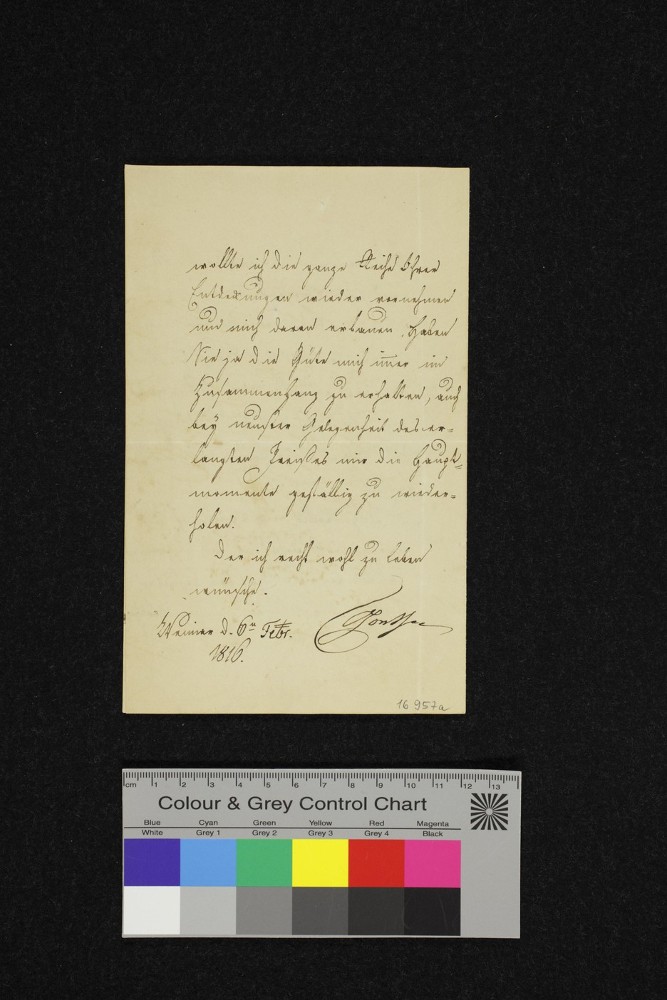 wollte ich die ganze Reihe Ihrer
Entdeckungen wieder vornehmen
und mich daran erbauen. Haben
Sie ja die Güte mich im̅er im
Zusammenhang zu erhalten, auch
bey neuster Gelegenheit des er-
langten Preißes mir die Haupt-
momente gefällig zu wieder-
holen.
Der ich recht wohl zu leben
wünsche.
Weimar d. 6n Febr.
1816.
Goethe
16 957a
cm 1 2 3 4 5 6 7 8 9 10 11 12 13
Colour & Grey Control Chart
Blue Cyan Green Yellow Red Magenta
White Grey 1 Grey 2 Grey 3 Grey 4 Black